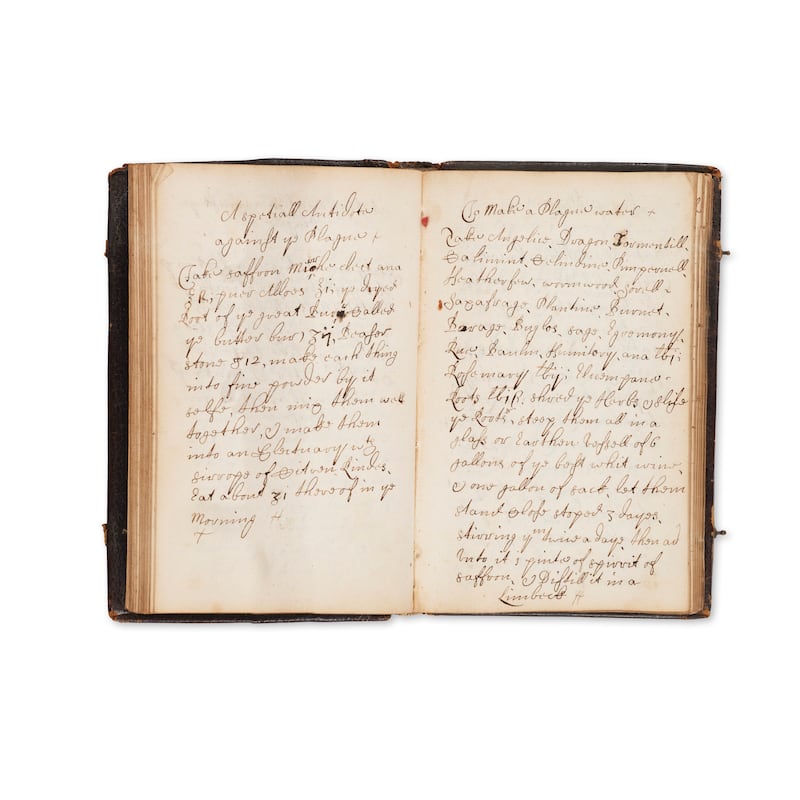 A spetiall Antidote
against ye Plague
Take saffron Mirhe elect ana
ʒii, puer Alloes ʒi; ye dryed
Root of ye great Burr Called
ye butter bur) ʒij, Beasor
stone ʒ12, make each thing
into fine powder by it
selfe, then mix them well
together, & make them
into an Electuary wth
sirroge of Sitren Rindes,
Eat about ʒi thereof in ye
Morning
To Make a Plague water
Take Angelice, Dragon Tormentill,
Salimint, Selindine, Pimpernell,
Heatherfew, wormwood, sorell,
Saxafrage, Plantine, Burnet,
Borage, Buglos, sage, Egremony,
Rue, Baulm, Fumitory, ana lbj;
Rosemary lbij; Enempane
Roots lbiß, shred ye Herbs & slise
ye Roots, steep them all in a
glass or Earthen Vessell of 6
gallons of ye best whit wine
& one gallon of sack, let them
stand Close stoped 3 dayes,
stirring ym twice a daye, then ad
Unto it 1 pinte of spirrit of
saffron, & Distill it in a
Limbeck